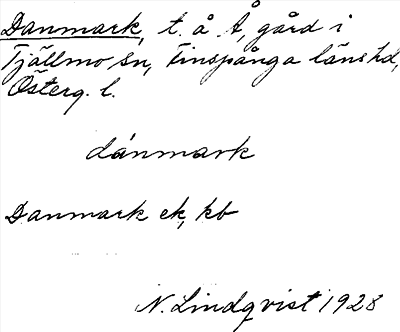 Danmark, t. å Å, gård i
Tjällmo sn, Finspånga länshd,
Österg. l.
dánmark
Danmark ek, kb
N. Lindqvist 1928